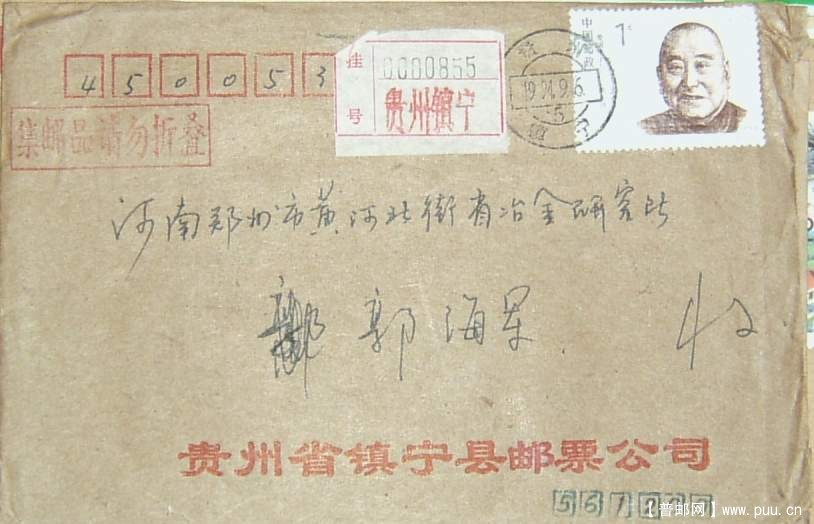 450053
集邮品请勿折叠
挂号
0000855
贵州镇宁
中国邮政
1元
1994.9.6
5
镇宁
河南郑州市黄河北街省冶金研究所
郭海军 收
贵州省镇宁县邮票公司
【普邮网】www.puu.cn